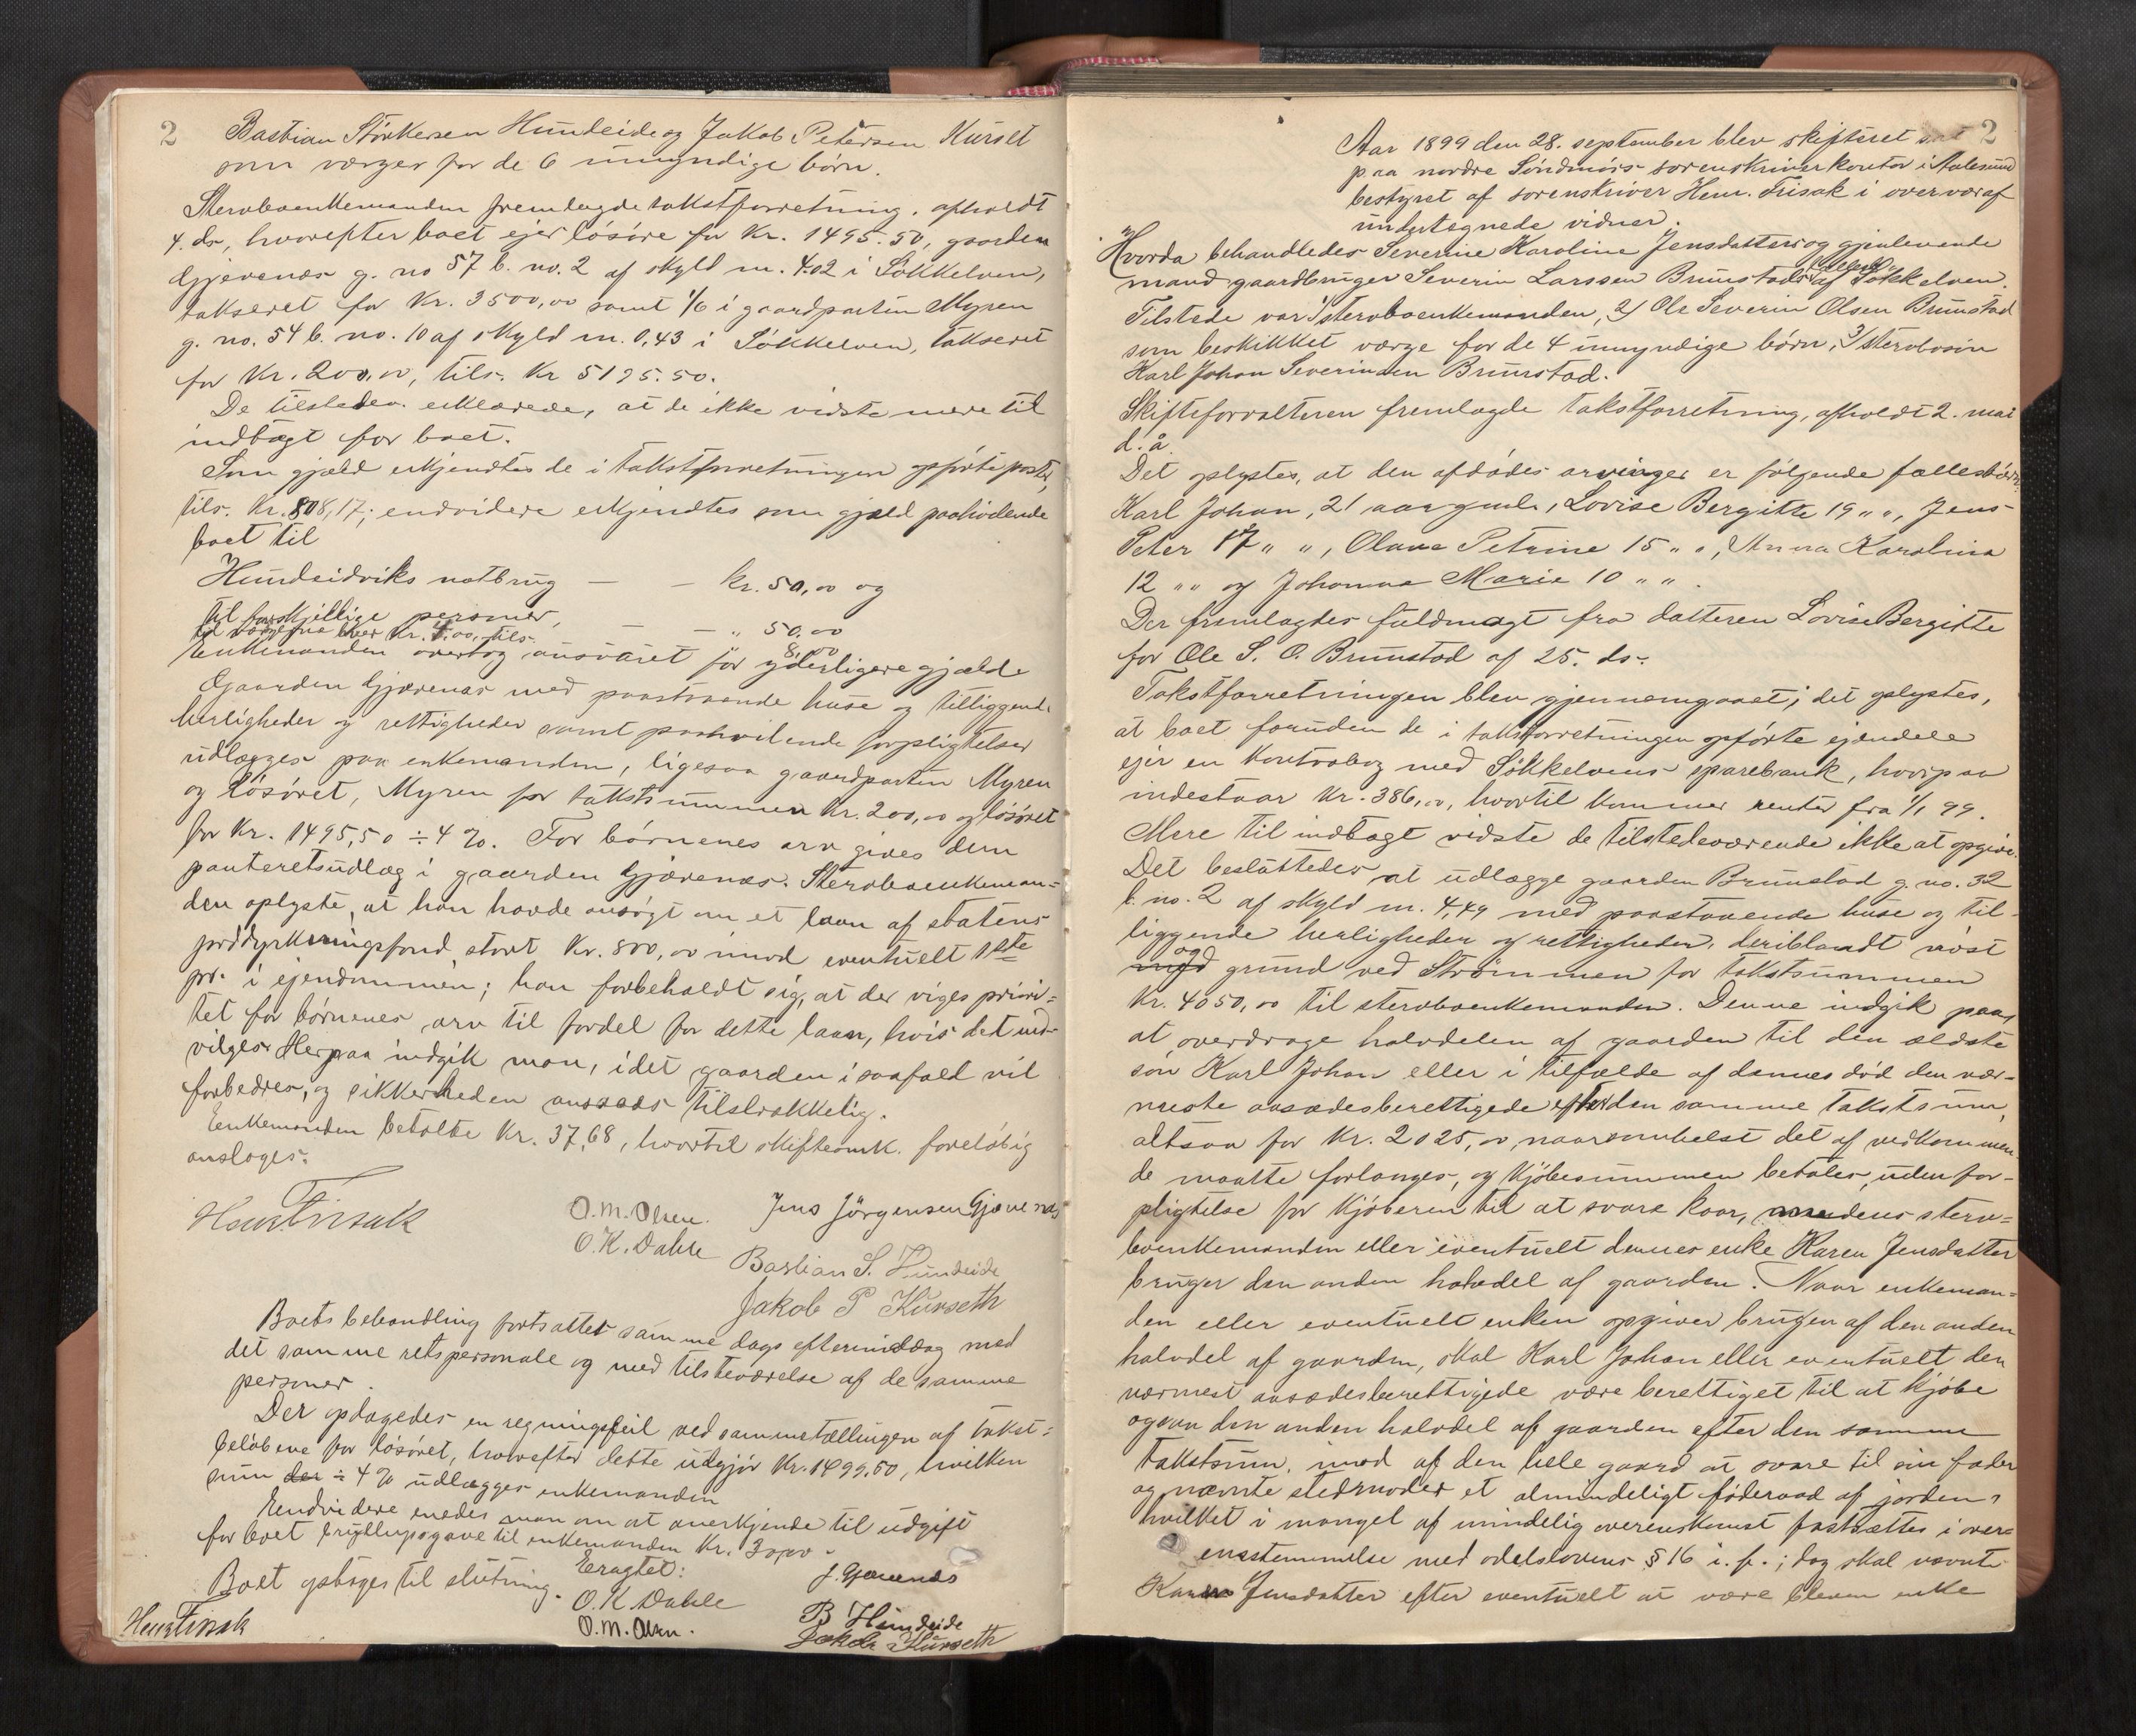 2
Bastian Störkersen Hundeide og Jakob Petersen Kurset
som værger for de 6 umyndige børn.
Stervboenkemanden fremlagde takstforretning, afholdt
4. ds., hvorefter boet ejer løsøre for Kr. 1495.50, gaarden
Gjævenæs g. no 57 b. no. 2 af skyld m. 4.02 i Søkkelven,
takseret for Kr. 3500,00 samt 1/6 i gaardparten Myren
g. no. 54 b. no. 10 af skyld m. 0,43 i Søkkelven, takseret
for Kr. 200,00, tils. Kr 5195.50.
De tilstedev. erklærede, at de ikke vidste mere til
indtægt for boet.
Som gjæld erkjendtes de i takstforretningen opførte poster,
tils. Kr. 808,17; endvidere erkjendtes som gjæld paahvilende
boet til
Hundeidviks notbrug — — kr. 50,00 og
til forskjellige personer, — — " 50.00
til værgerne hver Kr. 4.00, tils. 8,00
Enkemanden overtog ansvaret for yderligere gjæld.
Gaarden Gjævenæs med paastaaende huse og tilliggende
herligheder og rettigheder samt paahvilende forpligtelser
udlægges paa enkemanden, ligesaa gaardparten Myren
og løsøret, Myren for takstsummen Kr. 200,00 og løsøret
for Kr. 1495,50 ÷ 4 %. For børnenes arv gives dem
panteretsudlæg i gaarden Gjævenæs. Stervboenkeman=
den oplyste, at han havde ansøgt om et laan af statens
jorddyrkningsfond stort Kr. 800,00 imod eventuelt 1ste
pr. i ejendommen; han forbeholdt sig, at der viges priori=
tet for børnenes arv til fordel for dette laan, hvis det ind-
vilges. Herpaa indgik man, idet gaarden i saafald vil
forbedres, og sikkerheden ansaaes tilstrækkelig.
Enkemanden betalte Kr. 37,68, hvortil skifteomk. foreløbig
ansloges.
Henr Frisak
O. M. Olsen. Jens Jörgensen Gjævenæs
O. K. Dahle Bastian S. Hundeide
Jakob P Kurseth
Boets behandling fortsattes samme dags eftermiddag med
det samme retspersonale og med tilsteværelse af de samme
personer.
Der opdagedes en regningsfeil ved sammetællingen af takst=
beløbene for løsøret, hvorefter dette udgjør Kr. 1499,50, hvilken
sum der ÷ 4 % udlægges enkemanden
Endvidere enedes man om at anerkjende til udgift
for boet bryllupsgave til enkemanden Kr. 30,00.
Boet optages til slutning.
Eragtet:
Henr Frisak
O. K. Dahle
O. M. Olsen.
J. Gjævenæs
B Hundeide
Jakob Kurseth
2
Aar 1899 den 28. september blev skifteret sat
paa nordre Søndmørs sorenskriverkontor i Aalesund
bestyret af sorenskriver Henr. Frisak i overvær af
undertegnede vidner.
Hvorda behandledes Severine Karoline Jensdatters og gjenlevende
mand gaardbruger Severin Larssen Brunstads fællesbo af Søkkelven.
Tilstede var 1/ stervboenkemanden, 2/ Ole Severin Olsen Brunstad
som beskikket værge for de 4 umyndige børn, 3/ stervbosøn
Karl Johan Severinsen Brunstad.
Skifteforvalteren fremlagde takstforretning, afholdt 2. mai
d. å.
Det oplystes, at den afdødes arvinger er følgende fællesbørn:
Karl Johan, 21 aar gml., Lovise Bergitte 19 " ", Jens
Peter 17 " ", Olava Petrine 15 " ", Anna Karolina
12 " " og Johanna Marie 10 " ".
Der fremlagdes fuldmagt fra datteren Lovise Bergitte
for Ole S. O. Brunstad af 25. ds.
Takstforretningen blev gjennemgaaet; det oplystes,
at boet foruden de i takstforretningen opførte ejendele
ejer en Kontrabog med Søkkelvens sparebank, hvorpaa
indestaar Kr. 386,00, hvortil kommer renter fra 1/1 99.
Mere til indtægt vidste de tilstedeværende ikke at opgive.
Det besluttedes at udlægge gaarden Brunstad g. no. 32
b. no. 2 af skyld m. 4,49 med paastaaende huse og til-
liggende herligheder og rettigheder, deriblandt nöst
med og grund ved Strömmen for takstsummen
Kr. 4050,00 til stervboenkemanden. Denne indgik paa
at overdrage halvdelen af gaarden til den ældste
søn Karl Johan eller i tilfælde af dennes død den nær-
meste aasædesberettigede efter den samme takstsum,
altsaa for Kr. 2025,00, naarsomhelst det af vedkommen-
de maatte forlanges, og kjøbesummen betales, uden for-
pligtelse for kjøberen til at svare kaar, medens sterv=
boenkemanden eller eventuelt dennes enke Karen Jensdatter
bruger den anden halvdel af gaarden. Naar enkeman=
den eller eventuelt enken opgiver brugen af den anden
halvdel af gaarden, skal Karl Johan eller eventuelt den
nærmest aasædesberettigede være berettiget til at kjøbe
ogsaa den anden halvdel af gaarden efter den samme
takstsum, imod af den hele gaard at svare til sin fader
og nævnte stedmoder et almindeligt føderaad af jorden,
hvilket i mangel af mindelig overenskomst fastsættes i over=
ensstemmelse med odelslovens § 16 i. f.; dog skal nævnte
Karen Jensdatter efter eventuelt at være bleven enke